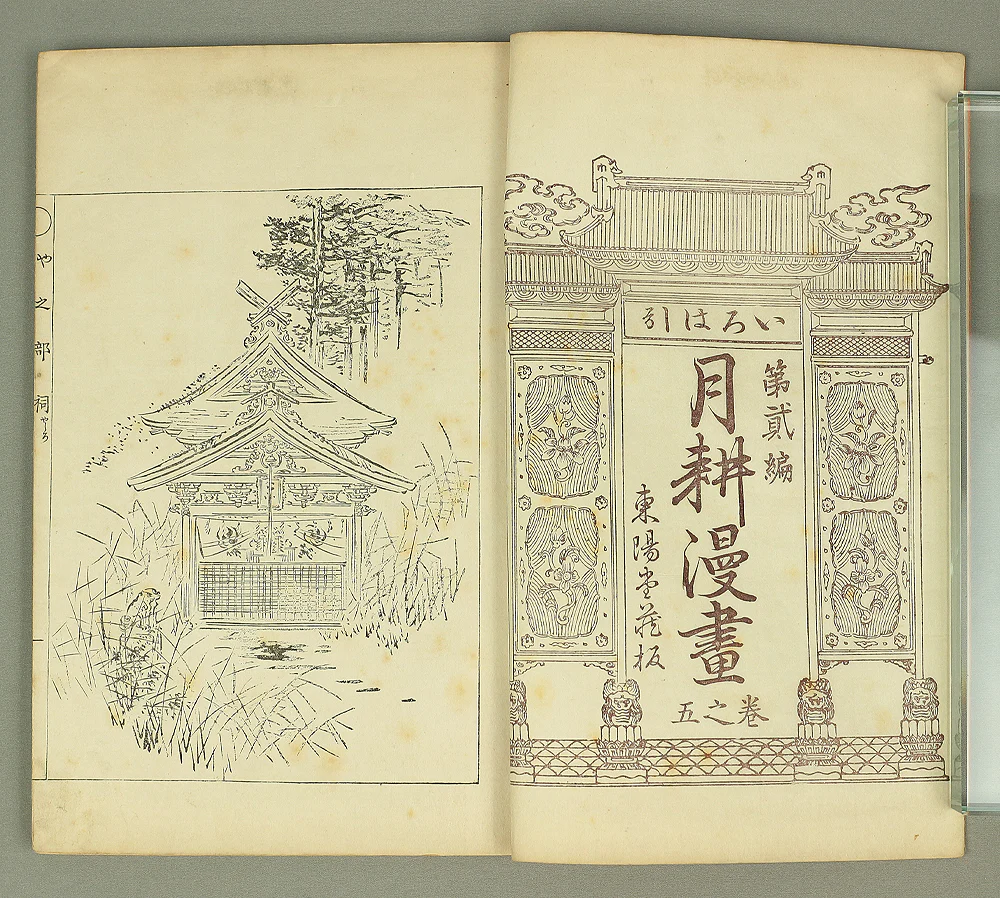 いろは引
第貳編
月耕漫畫
東陽堂藏板
卷之五
〇や之部 祠やしろ